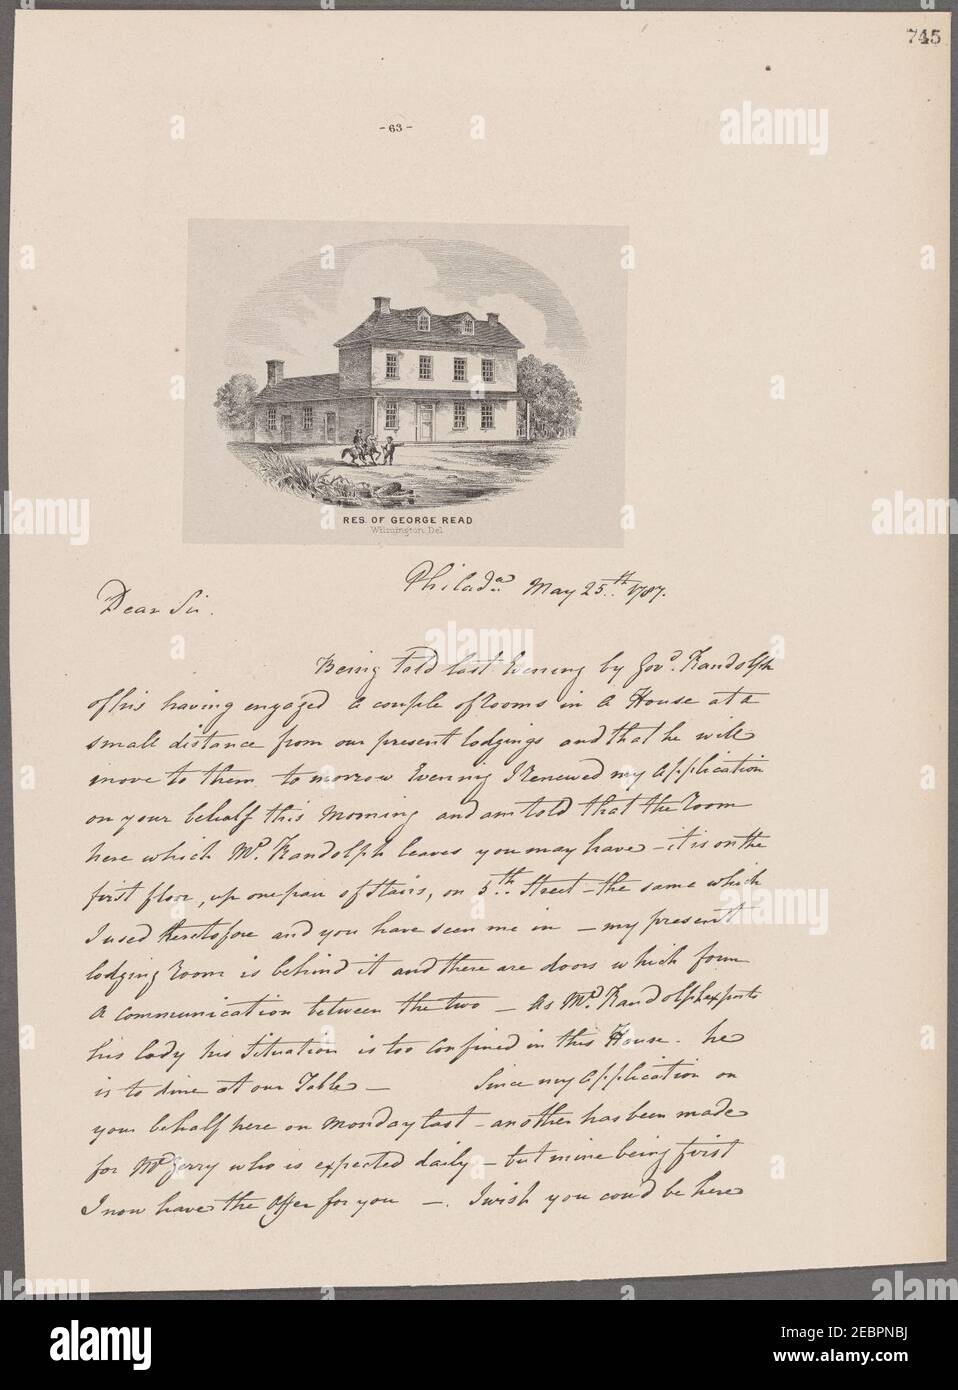 745
- 63 -
RES. OF GEORGE READ
Wilmington Del.
Philada. May 25th. 1787.
Dear Sir.
Being told last Evening by Govr. Randolph
of his having engaged a couple of rooms in a House at a
small distance from our present lodgings and that he will
move to them to morrow Evening I renewed my application
on your behalf this Morning and am told that the room
here which Mr. Randolph leaves you may have - it is on the
first floor, up one pair of stairs, on 5th. Street - the same which
I used heretofore and you have seen me in - my present
lodging room is behind it and there are doors which form
a communication between the two - As Mr. Randolph expects
his lady his Situation is too confined in this House. he
is to dine at our Table - Since my application on
your behalf here on Monday last - another has been made
for Mr. Gerry who is expected daily - but mine being first
I now have the Offer for you - . I wish you could be here
alamy
Image ID: 2EBPNBJ
www.alamy.com